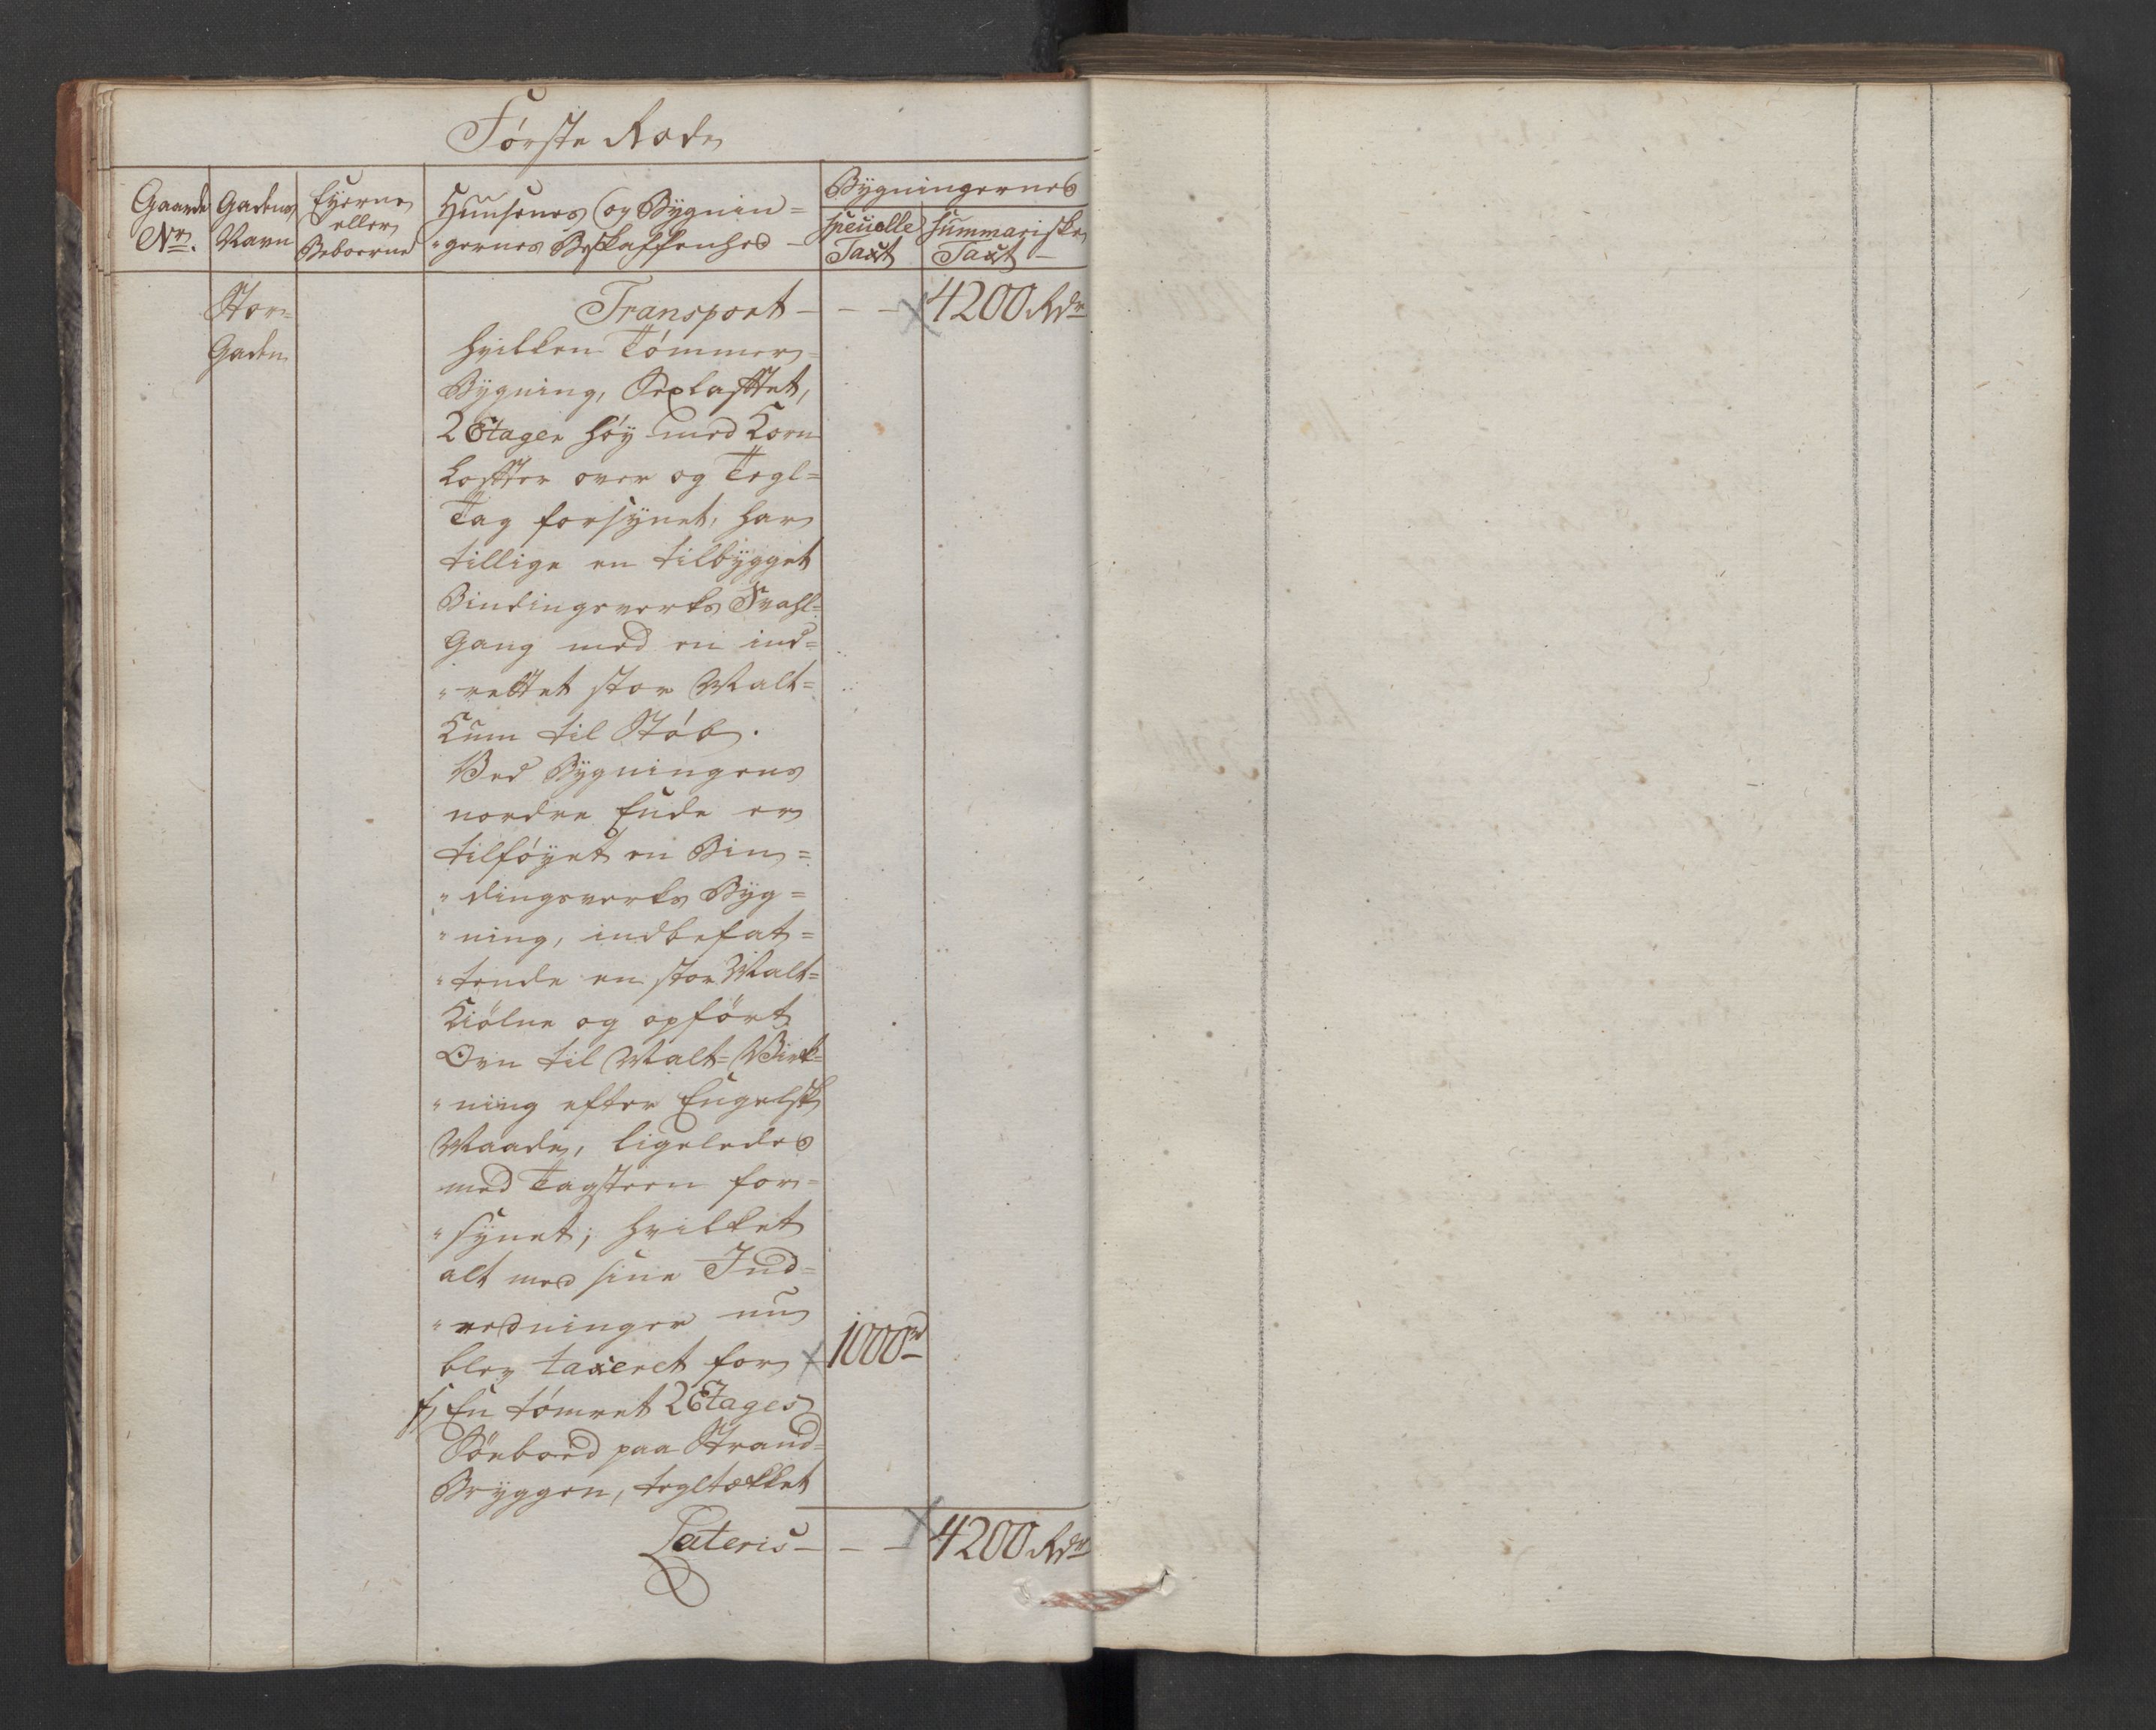 Første Rode
Gaarde Nr. Gadens Navn Eyerne eller Beboerne Huusenes og Bygnin= Bygningernes
"gernes Beskaffenhed - specielle Taxt summariske Taxt -
Stor= Transport - - - 4200 Rdr
Gaden hvilken Tømmer=
Bygning, Sexlafftet,
2 Etager høy med Korn
Loffter over og Tegl=
Tag forsynet, har
tillige en tilbygget
Bindingsverks Svahl=
Gang med en ind=
"rettet stor Malt=
Kum til Støb.
Ved Bygningens
nordre Ende er
tilføyet en Bin=
"dingsverks Byg=
"ning, indbefat=
"tende en stor Malt=
Kiølne og opført
Ovn til Malt=Virk=
"ning efter Engelsk
Maade, ligeledes
med Tagsteen for=
"synet; hvilket
alt med sine Ind=
"redninger nu
blev taxeret for 1000 rd
f) En tømret 2 Etages
Søeboed paa Strand=
Bryggen, tegltækket
Lateris - - - 4200 Rdr